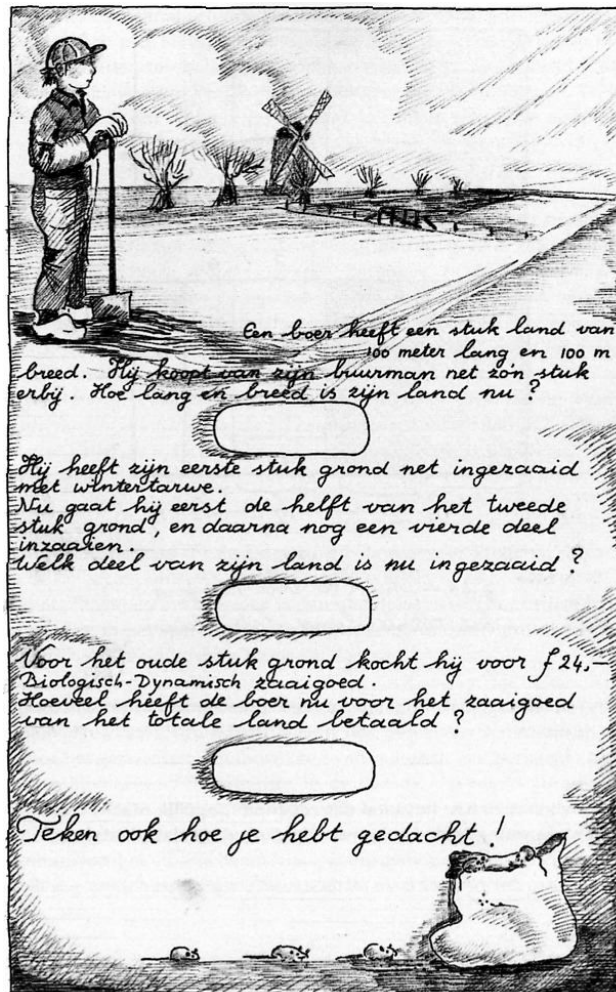 Een boer heeft een stuk land van
100 meter lang en 100 m
breed. Hij koopt van zijn buurman net zo'n stuk
erbij. Hoe lang en breed is zijn land nu?
Hij heeft zijn eerste stuk grond net ingezaaid
met wintertarwe.
Nu gaat hij eerst de helft van het tweede
stuk grond, en daarna nog een vierde deel
inzaaien.
Welk deel van zijn land is nu ingezaaid?
Voor het oude stuk grond kocht hij voor f 24,—
Biologisch-Dynamisch zaaigoed.
Hoeveel heeft de boer nu voor het zaaigoed
van het totale land betaald?
Teken ook hoe je hebt gedacht!